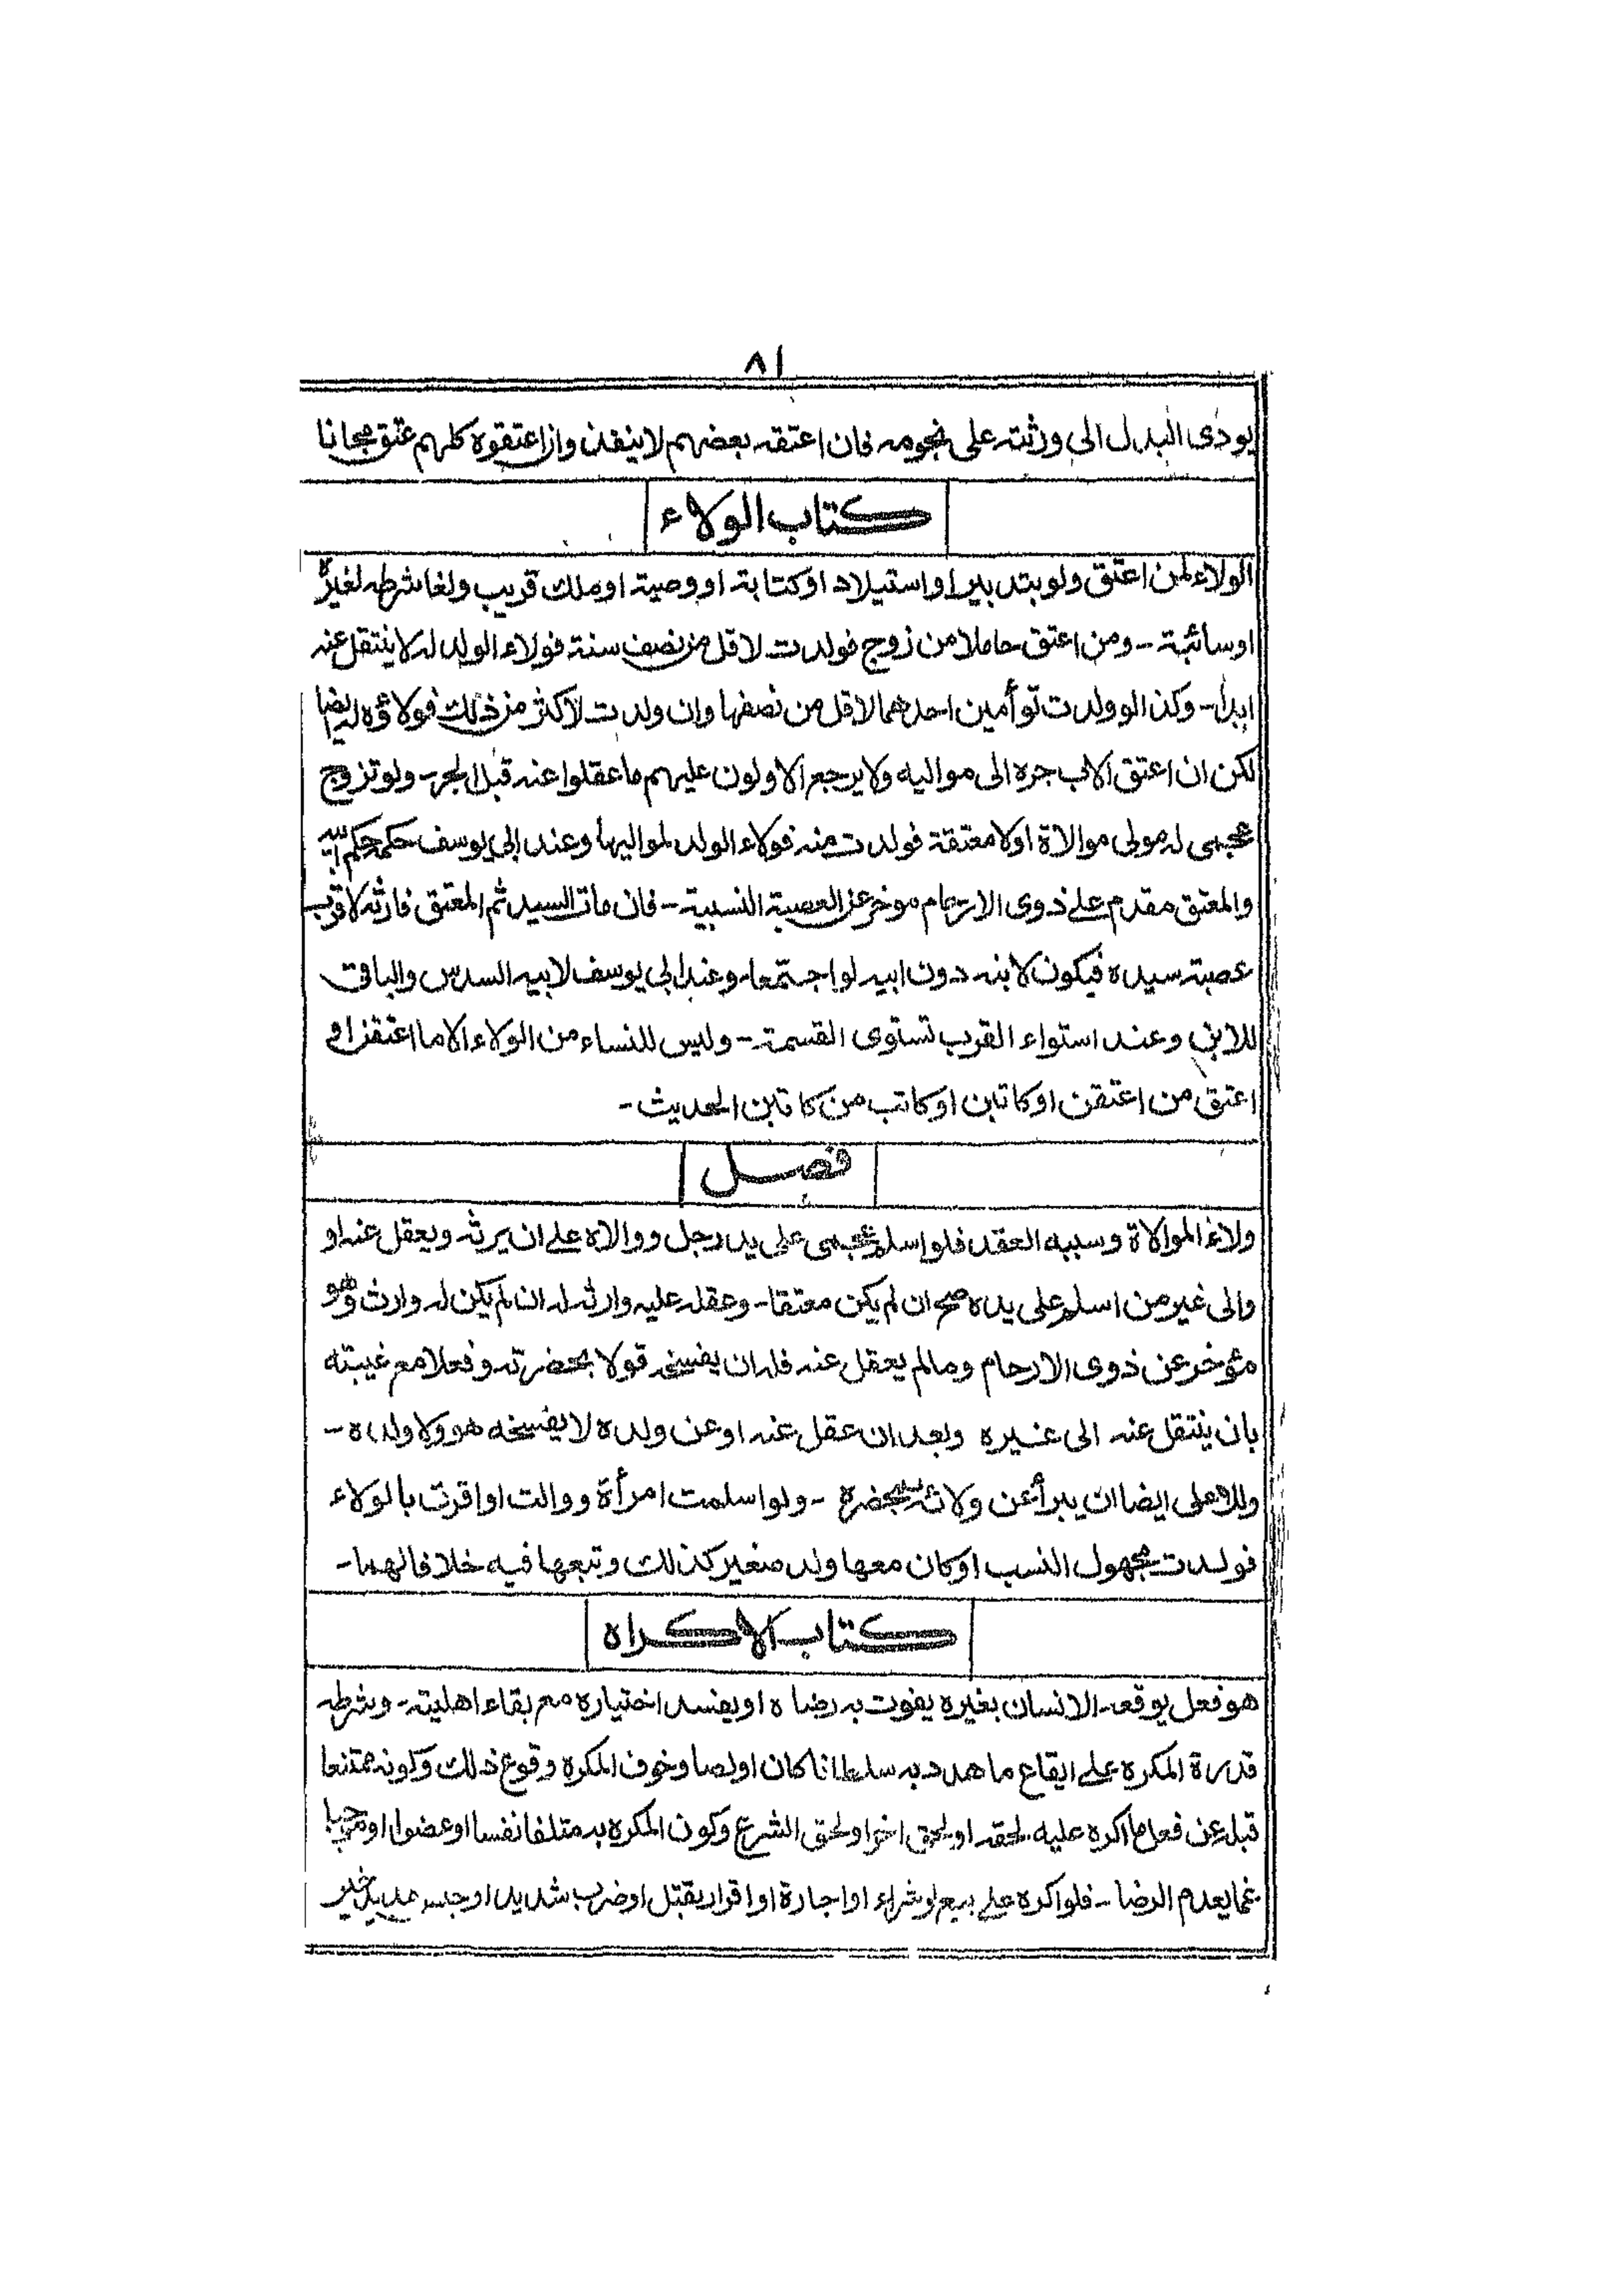 ٨١
يودى البدل الى ورثته على نجومه فان اعتقه بعضهم لا ينفذ وان اعتقوه كلهم عتق مجانا
كتاب الولاء
الولاء لمن اعتق ولو بتدبير او استيلاد او كتابة او وصية او ملك قريب ولغا شرطه لغيره
او سائبة - ومن اعتق حاملا من زوج فولدت لاقل من نصف سنة فولاء الولد له لا ينتقل عنه
ابدا - وكذا لو ولدت توأمين احدهما لاقل من نصفها وان ولدت لاكثر من ذلك فولاؤه له ايضا
لكن ان اعتق الاب جره الى مواليه ولا يرجع الاولون عليهم ما عقلوا عنه قبل الجر - ولو تزوج
عجمى له مولى موالاة اولا معتقة فولدت منه فولاء الولد لمواليها وعند ابى يوسف حكمه حكم ابيه
والمعتق مقدم على ذوى الارحام موخر عن العصبة النسبية - فان مات السيد ثم المعتق فارثه لاقرب
عصبة سيده فيكون لابنه دون ابيه لو اجتمعا - وعند ابى يوسف لابيه السدس والباقى
للابن وعند استواء القرب تستوى القسمة - وليس للنساء من الولاء الا ما اعتقن او
اعتق من اعتقن او كاتبن او كاتب من كاتبن الحديث -
فصل
ولاء الموالاة وسببه العقد فلو اسلم عجمى على يد رجل ووالاه على ان يرثه ويعقل عنه او
والى غير من اسلم على يده صح ان لم يكن معتقا - وعقله عليه وارثه له ان لم يكن له وارث وهو
مؤخر عن ذوى الارحام وما لم يعقل عنه فله ان يفسخه قولا بحضرته وفعلا مع غيبته
بان ينتقل عنه الى غيره وبعد ان عقل عنه او عن ولده لا يفسخه هو ولا ولده -
وللاعلى ايضا ان يبرأ عن ولائه بحضرة - ولو اسلمت امرأة ووالت او اقرت بالولاء
فولدت مجهول النسب او كان معها ولد صغير كذلك وتبعها فيه خلافا لهما -
كتاب الاكراه
هو فعل يوقعه الانسان بغيره يفوت به رضاه او يفسد اختياره مع بقاء اهليته - وشرطه
قدرة المكره على ايقاع ما هدد به سلطانا كان او لصا وخوف المكره وقوع ذلك وكونه ممتنعا
قبله عن فعل ما اكره عليه لحقه او لحق اخر او لحق الشرع وكون المكره به متلفا نفسا او عضوا او موجبا
غما يعدم الرضا - فلو اكره على بيع او شراء او اجارة او اقرار بقتل او ضرب شديد او حبس مديد خير